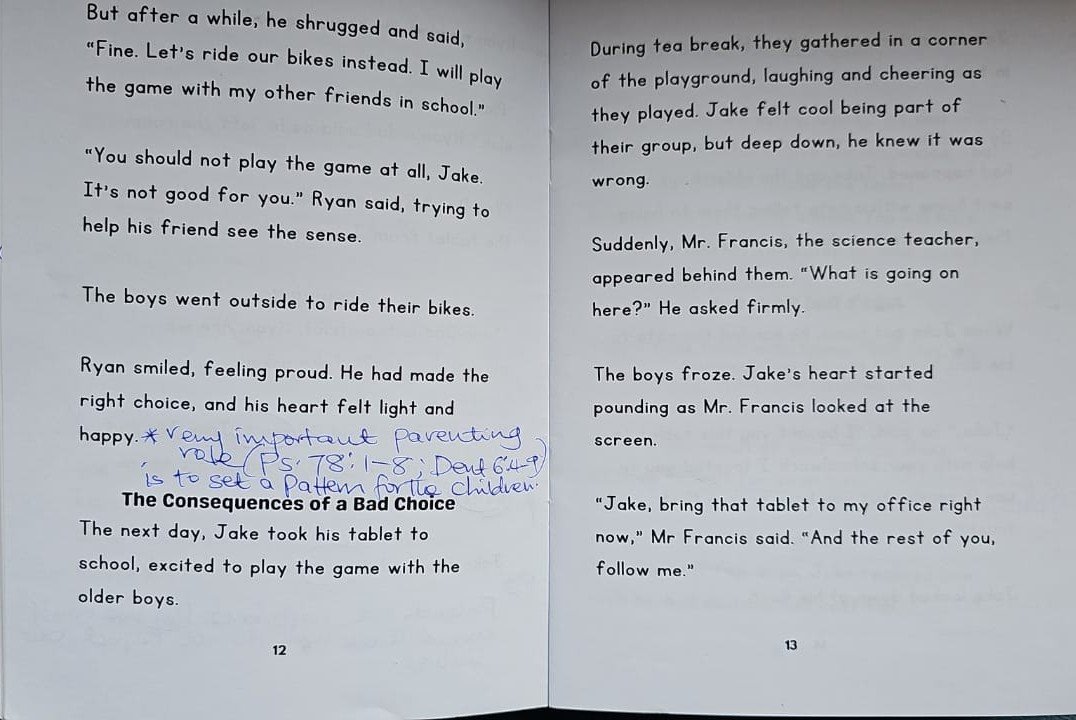 But after a while, he shrugged and said,
"Fine. Let's ride our bikes instead. I will play
the game with my other friends in school."
"You should not play the game at all, Jake.
It's not good for you." Ryan said, trying to
help his friend see the sense.
The boys went outside to ride their bikes.
Ryan smiled, feeling proud. He had made the
right choice, and his heart felt light and
happy. * very important parenting
role (Ps. 78:1-8; Deut 6:4-9)
is to set a pattern for the children.
The Consequences of a Bad Choice
The next day, Jake took his tablet to
school, excited to play the game with the
older boys.
12
During tea break, they gathered in a corner
of the playground, laughing and cheering as
they played. Jake felt cool being part of
their group, but deep down, he knew it was
wrong.
Suddenly, Mr. Francis, the science teacher,
appeared behind them. "What is going on
here?" He asked firmly.
The boys froze. Jake's heart started
pounding as Mr. Francis looked at the
screen.
"Jake, bring that tablet to my office right
now," Mr Francis said. "And the rest of you,
follow me."
13